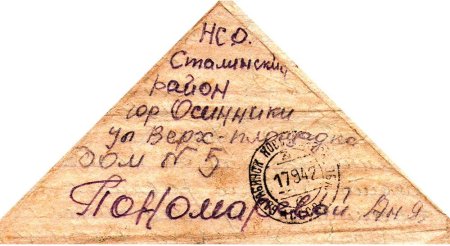 НСО.
Сталинский
район
гор Осинники
ул Верх-площадка
Дом № 5
Пономаревой Аня
17 9 42